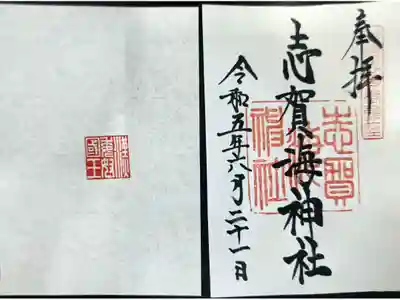 奉拝
志賀海神社
令和五年六月二十一日
志賀海神社
漢委奴國王